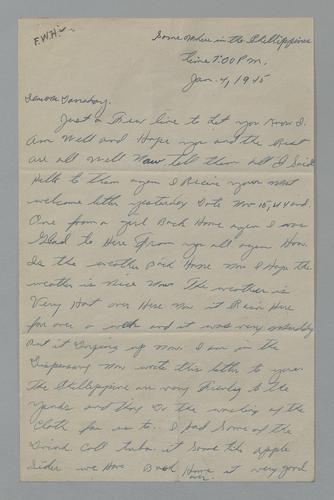 F.W.H.
Some where in the Phillippines
Time 7:00 P.m.
Jan. 4, 1945
Just a Few line to Let you Know I
Am Well and Hope you and the Rest
are all Well Now tell them All I Said
Hello to them again I Recive your most
welcome letter yesterday Date Nov 15, 44 and
One from a girl Back Home again I was
Glad to Here From you all again How
Is the weather Back Home Now I Hope the
weather is Nice Now The weather is
Very Hot over Here Now it Rain Here
for over a week and it was very
But it Drying up Now I am in the
Dispensary Now wrote this letter to you
The Phillippine are very Friendly to the
Yanks and they Do the washing of the
Cloth for us to. I had Some of the
Drink Call tuba it Some like apple
Sider we Have Back Home it very good